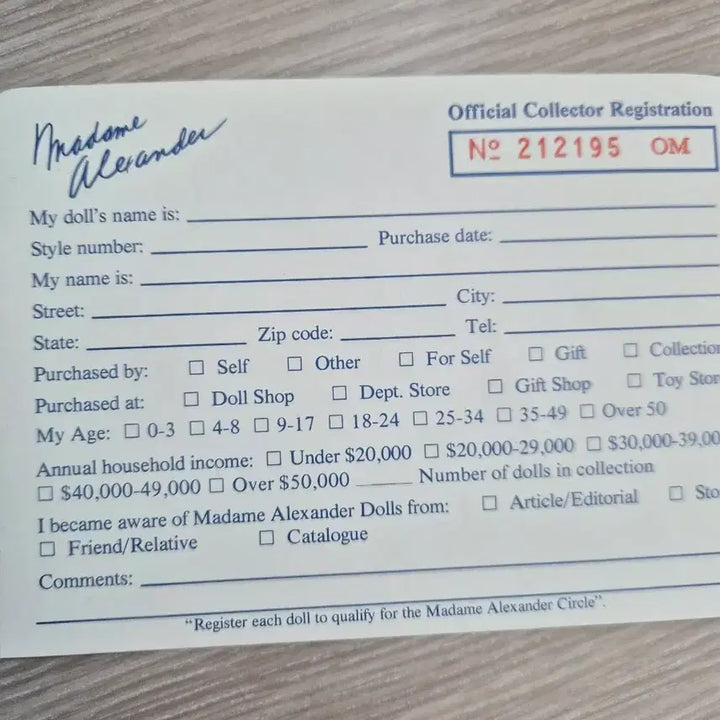 Madame
Alexander
Official Collector Registration
Nº 212195 OM
My doll's name is:
Style number: Purchase date:
My name is:
Street: City:
State: Zip code: Tel:
Purchased by: ☐ Self ☐ Other ☐ For Self ☐ Gift ☐ Collection
Purchased at: ☐ Doll Shop ☐ Dept. Store ☐ Gift Shop ☐ Toy Stor
My Age: ☐ 0-3 ☐ 4-8 ☐ 9-17 ☐ 18-24 ☐ 25-34 ☐ 35-49 ☐ Over 50
Annual household income: ☐ Under $20,000 ☐ $20,000-29,000 ☐ $30,000-39,00
☐ $40,000-49,000 ☐ Over $50,000 ______ Number of dolls in collection
I became aware of Madame Alexander Dolls from: ☐ Article/Editorial ☐ Sto
☐ Friend/Relative ☐ Catalogue
Comments:
"Register each doll to qualify for the Madame Alexander Circle".